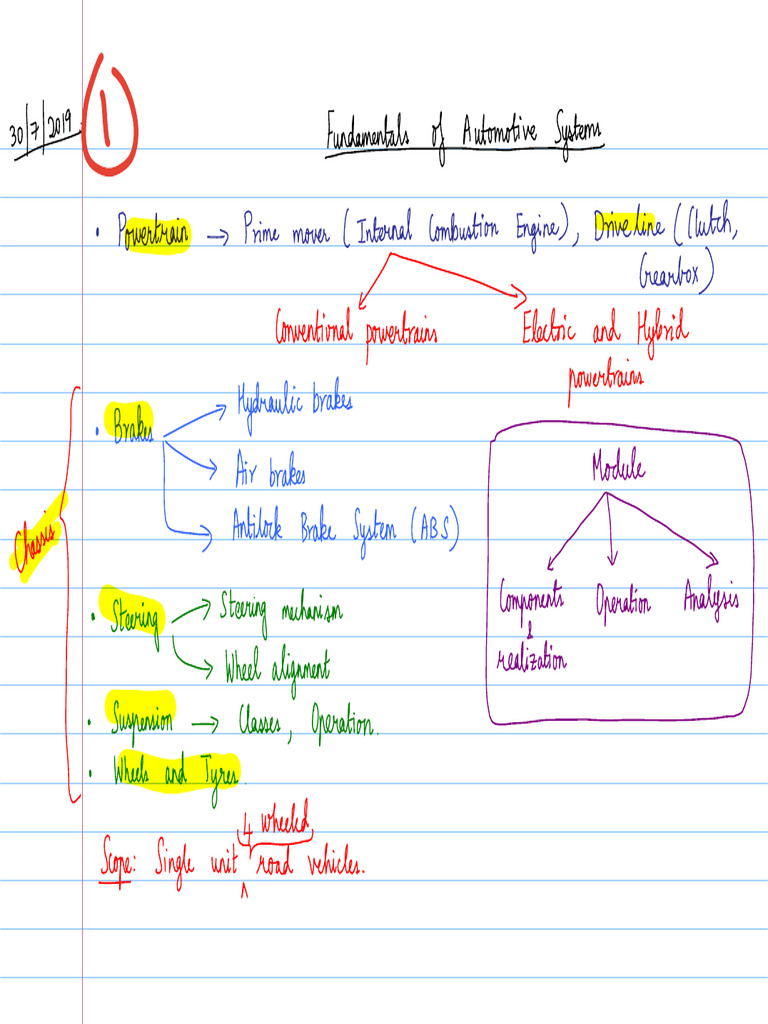 30/7/2019
1
Fundamentals of Automotive Systems
• Powertrain → Prime mover (Internal Combustion Engine), Driveline (Clutch,
Gearbox)
Conventional powertrains
Electric and Hybrid
powertrains
Chassis
• Brakes
Hydraulic brakes
Air brakes
Antilock Brake System (ABS)
Module
Components
&
realization
Operation
Analysis
• Steering
Steering mechanism
Wheel alignment
• Suspension → Classes, Operation.
• Wheels and Tyres.
4 wheeled
Scope: Single unit ^ road vehicles.